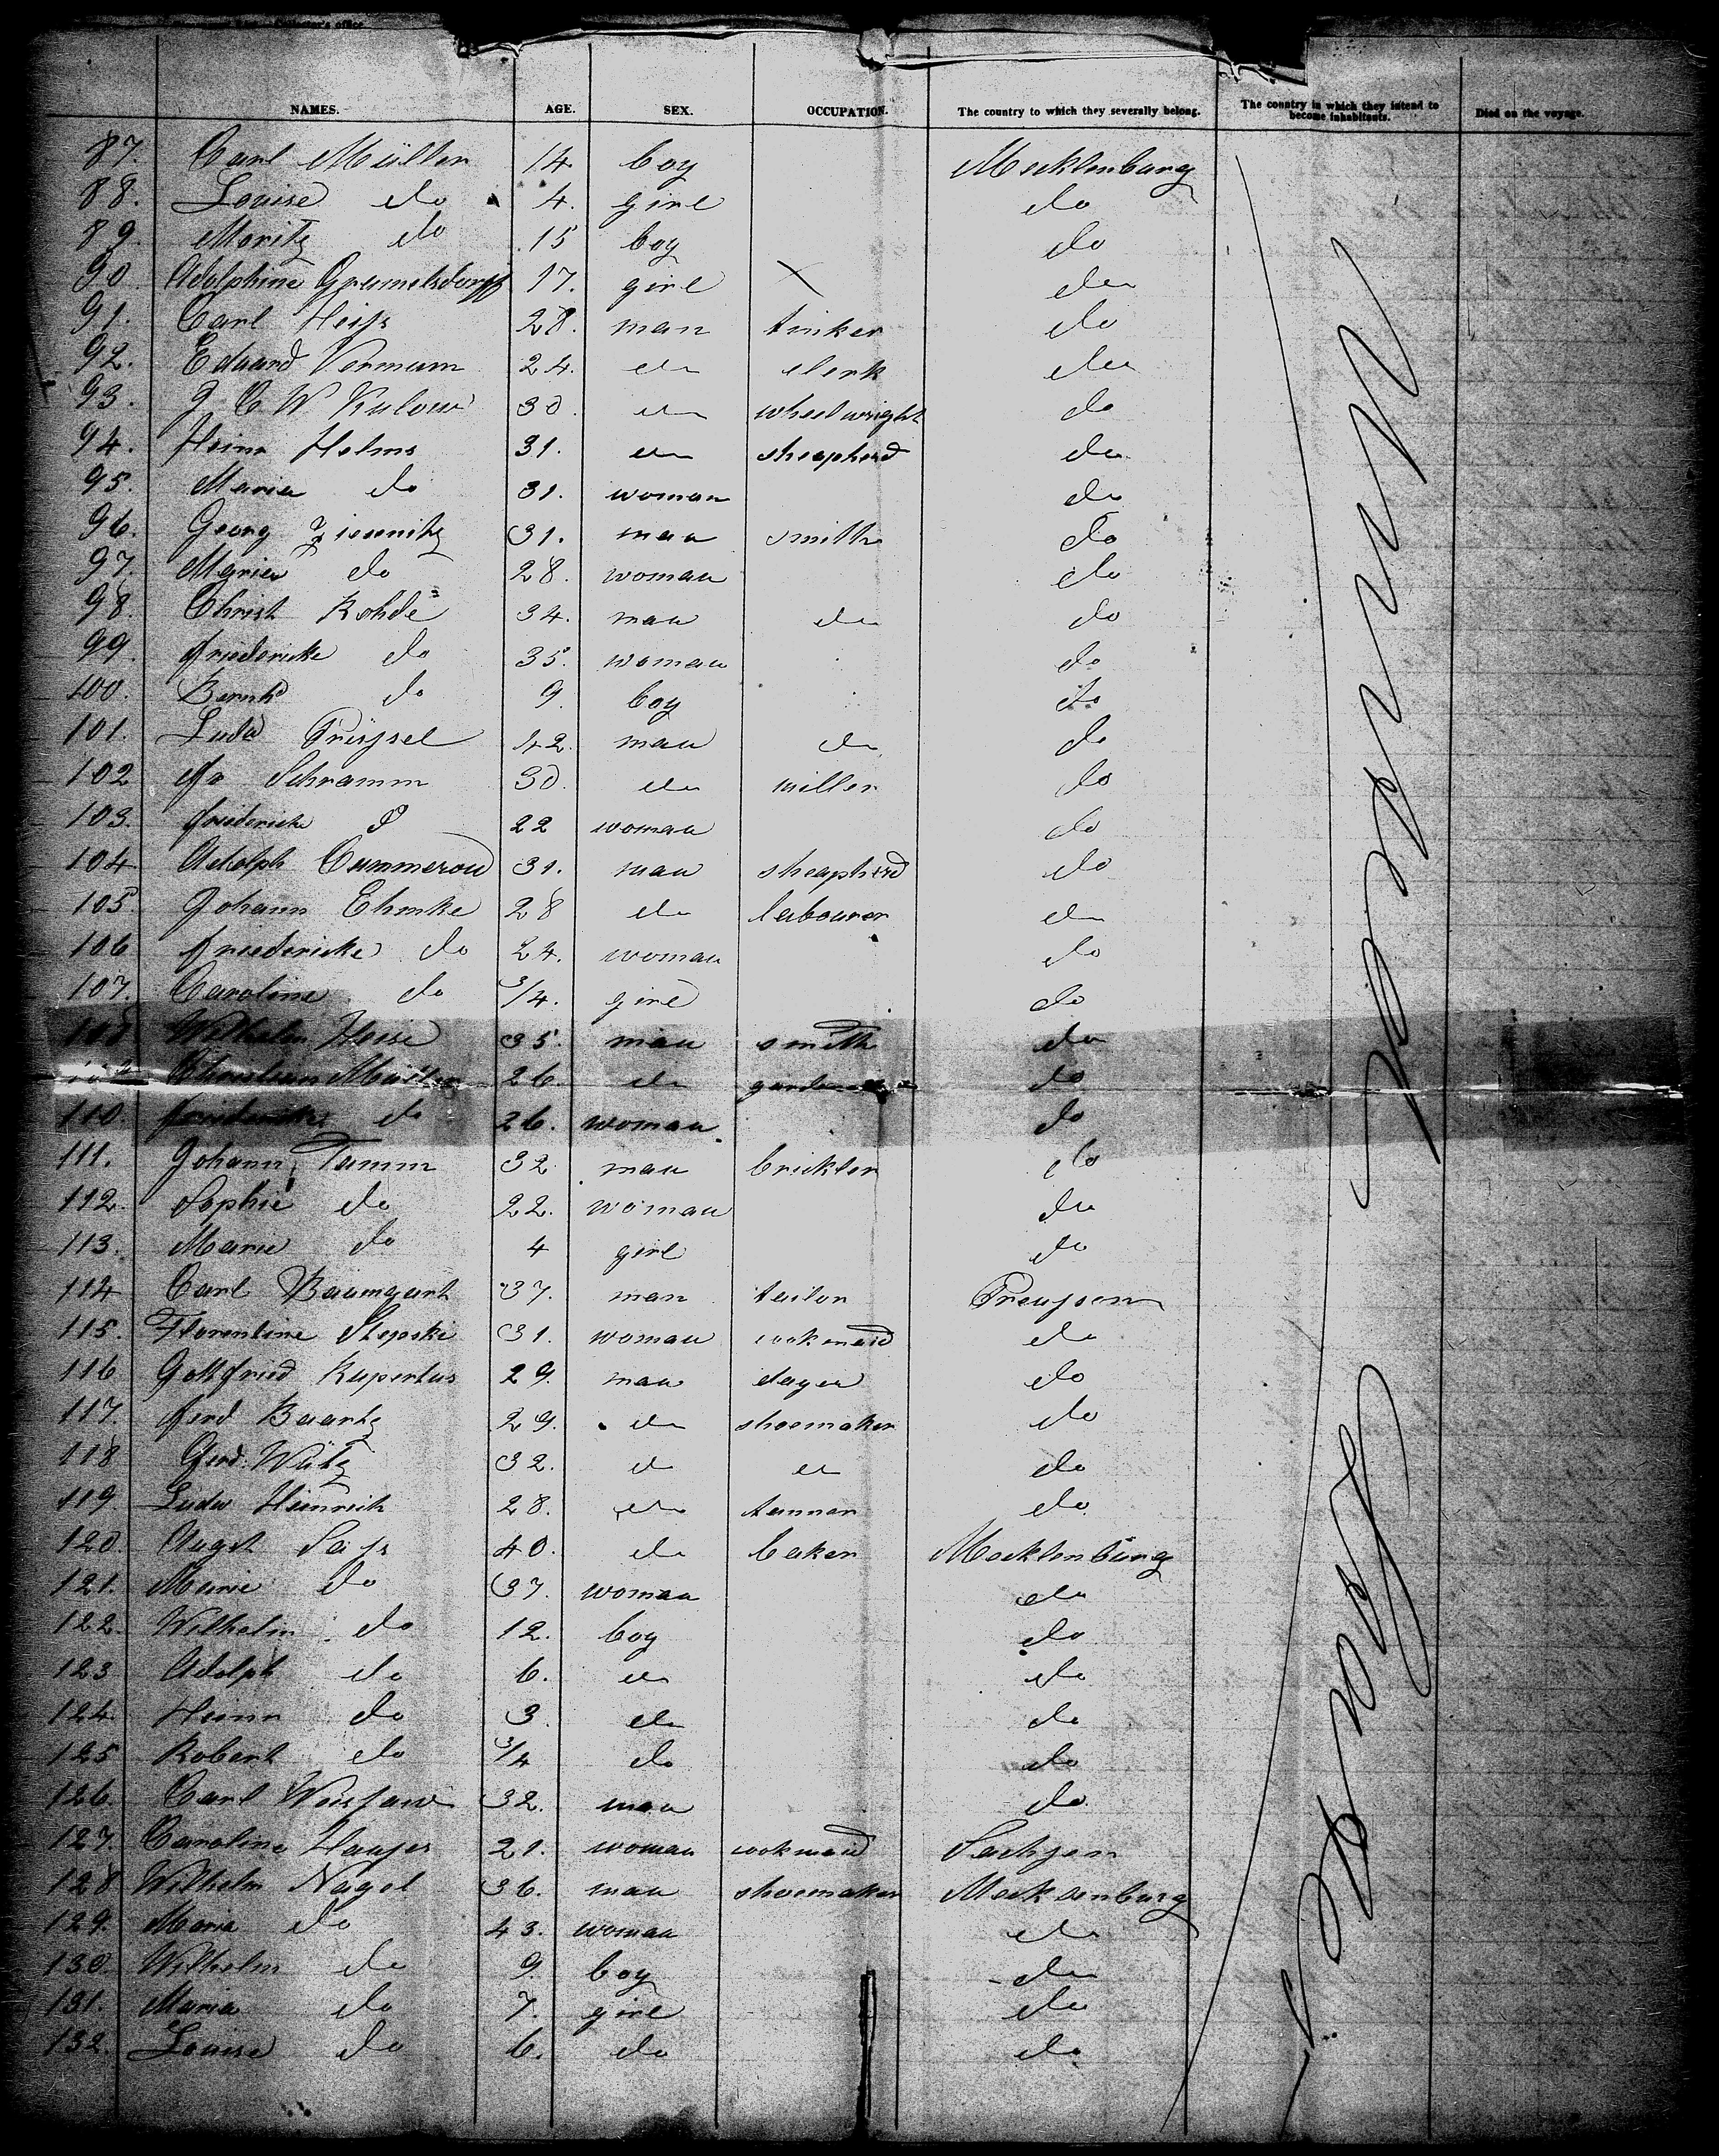 NAMES. AGE. SEX. OCCUPATION. The country to which they severally belong. The country in which they intend to become inhabitants. Died on the voyage.
87. Carl Müller 14. boy Mecklenburg
88. Louise do 4. girl do
89. Moritz do 15 boy do
90. Adolphine 17. girl do
91. Carl 28. man tinker do
92. Eduard 24. do clerk do
93. J C W Kulow 30. do wheelwright do
94. Heinr Helms 31. do sheapherd do
95. Maria do 31. woman do
96. Georg 31. man smith do
97. Maria do 28. woman do
98. Christ Rohde 34. man do do
99. friedericke do 35. woman do
100. Bernhd do 9. boy do
101. Ludw 42. man do do
102 Schramm 30. do miller do
103. friedericke 22 woman do
104 Adolph Cummerow 31. man sheapherd do
105. Johann Ehmke 28 do labourer do
106 friedericke do 24. woman do
107. Caroline do 3/4. girl do
108 Wilhelm 35. man smith do
Christian Müller 26. do do
110. friedericke do 26. woman do
111. Johann Tamm 32 man brickler do
112. Sophie do 22. woman do
113. Marie do 4 girl do
114 Carl Baumgart 37. man tailor Preussen
115. Florentine 31. woman cookmaid do
116 Gottfried Rupertus 29. man do
117. ferd 29. do shoemaker do
118 32. do do do
119. Ludw Heinrich 28. do tanner do
120. Augst 40. do baker Mecklenburg
121. Marie do 37. woman do
122. Wilhelm do 12. boy do
123 Adolph do 6. do do
124. Heinr do 3. do do
125 Robert do 3/4 do do
126. Carl 32. man do
127. Caroline 21. woman cookmaid Sachsen
128 Wilhelm Nagel 36. man shoemaker Mecklenburg
129. Maria do 43. woman do
130. Wilhelm do 9. boy do
131. Maria do 7. girl do
132. Louise do 6. do do